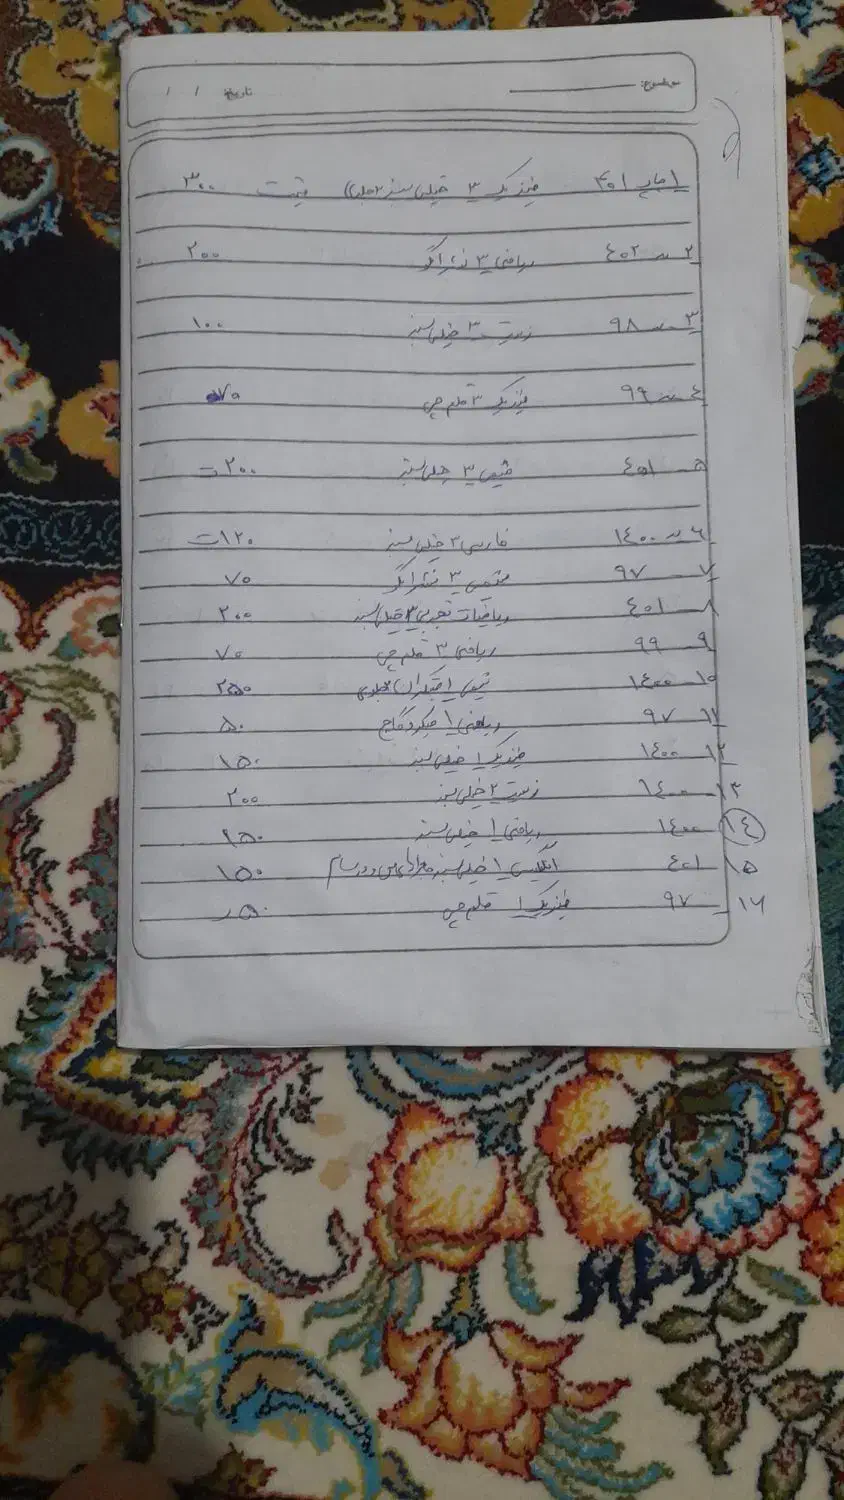 موضوع: تاریخ: / /
۱ چاپ ۴۰۱ فیزیک ۳ خیلی سبز (۲ جلد) قیمت ۳۰۰
۲ ـ ۴۰۲ ریاضی ۳ نشر الگو ۲۰۰
۳ ـ ۹۸ زیست ۳ خیلی سبز ۱۰۰
۴ ـ ۹۹ فیزیک ۳ قلم چی ۷۰
۵ ـ ۴۰۱ شیمی ۳ خیلی سبز ۲۰۰ ت
۶ ـ ۱۴۰۰ فارسی ۳ خیلی سبز ۱۲۰ ت
۷ ـ ۹۷ شیمی ۳ نشر الگو ۷۰
۸ ـ ۴۰۱ ریاضیات تجربی ۳ خیلی سبز ۲۰۰
۹ ـ ۹۹ ریاضی ۳ قلم چی ۷۰
۱۰ ـ ۱۴۰۰ شیمی ۱ مبتکران ۲۵۰
۱۱ ـ ۹۷ ریاضی ۱ میکرو گاج ۵۰
۱۲ ـ ۱۴۰۰ فیزیک ۱ خیلی سبز ۱۵۰
۱۳ ـ ۱۴۰۰ زیست ۲ خیلی سبز ۲۰۰
۱۴ ۱۴۰۰ ریاضی ۱ خیلی سبز ۱۵۰
۱۵ ۴۰۱ انگلیسی ۱ خیلی سبز ۱۵۰
۱۶ ۹۷ فیزیک ۱ قلم چی ۵۰